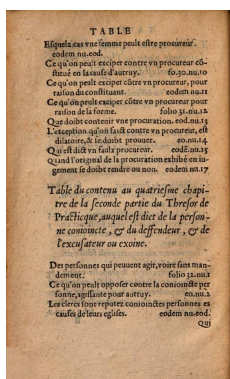 TABLE
Esquelz cas vne femme peult estre procureur.
eodem nu.eod.
Ce qu'on peult exciper contre vn procureur cō-
stitué en la cause d'autruy. fo.30.nu.10
Ce qu'on peult exciper cōtre vn procureur pour
raison du constituant. eodem nu.11
Ce qu'on peult exciper cōtre vn procureur pour
raison de la forme. folio 31.nu.12
Que doibt contenir vne procuration. eod.nu.13
L'exception qu'on faict contre vn procureur, est
dilatoire, & se doibt prouuer. eo.nu.14
Qui est dict vn faulx procureur. eodē.nu.15
Quand l'original de la procuration exhibé en iu-
gement se doibt rendre ou non. eodem nu.17
Table du contenu au quatriesme chapi-
tre de la seconde partie du Thresor de
Practicque, auquel est dict de la person-
ne conioincte, & du deffendeur, & de
l'excusateur ou exoine.
Des personnes qui peuuent agir, voire sans man-
dement. folio 32.nu.1
Ce qu'on peult opposer contre la conioincte per
sonne, agissante pour autruy. eo.nu.2
Les clercs sont reputez conioinctes personnes es
causes de leurs eglises. eodem nu.eod.
Qui